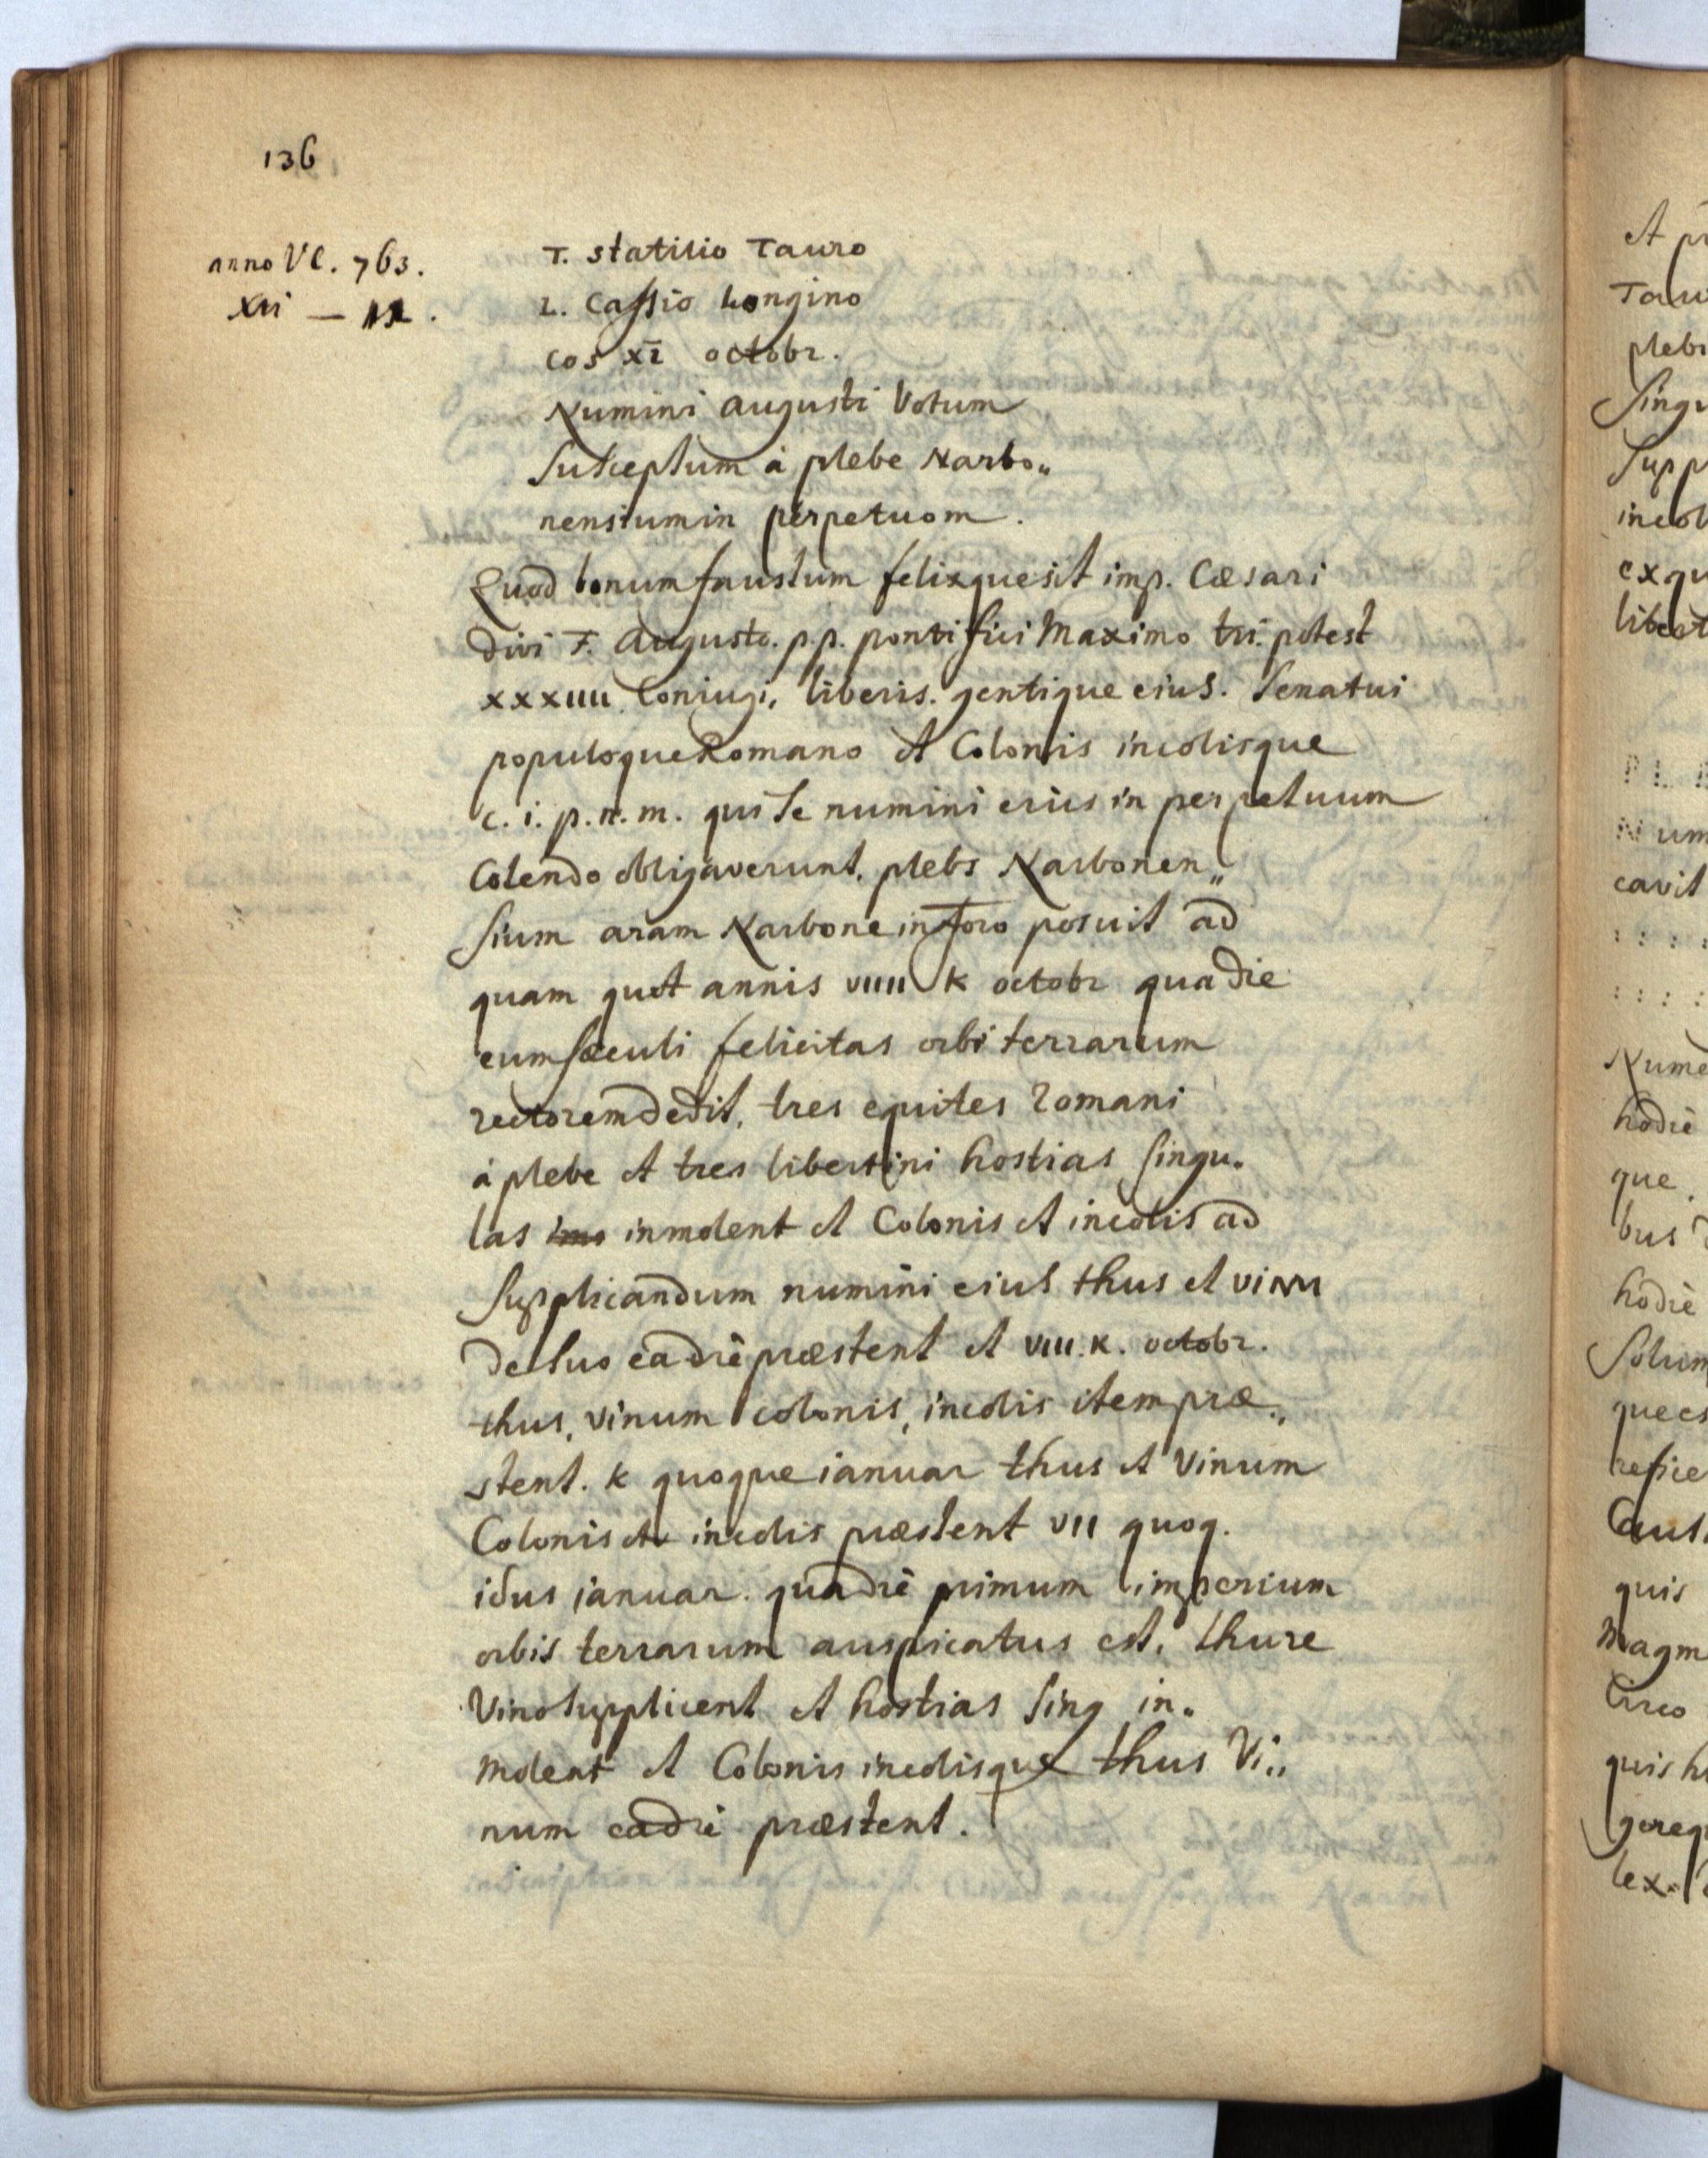 136
anno VC. 763.
Xii — 11.
T. Statilio Tauro
L. Cassio Longino
cos xi octobr.
Numini augusti Votum
Susceptum à plebe Narbo„
nensiumin perpetuom.
Quod bonum faustum felixquesit imp. Cæsari
divi F. augusto. p.p. pontifici Maximo tri. potest
xxxiiii Coniugi, liberis. gentique eius. Senatui
populoqueRomano et Colonis incolisque
c. i. p. n. m. qui Se numini eius in perpetuum
Colendo obligaverunt, plebs Narbonen„
sium aram Narbone in foro posuit ad
quam quot annis viiii k octobr qua die
eum sæculi felicitas orbi terrarum
rectorem dedit, tres equites Romani
à plebe et tres libertini hostias singu.
las inmolent et Colonis et incolis ad
Supplicandum numini eius thus et vinu
de Suo eadiè præstent et viii. k. octobr.
thus, vinum colonis, incolis item præ„
stent. k quoque ianuar thus et Vinum
Colonis et incolis præstent vii quoq.
idus ianuar. quadiè primum imperium
orbis terrarum auspicatus est, thure
Vino supplicent et hostias sing in.
molent et Colonis incolisque thus Vi„
num eadiè præstent.
et
Tau
pleb
Singu
Supp
incol
exqu
libert
PL
Num
cavit
Nume
hodiè
que
bus
hodiè
Solum
refice
quis
Magn
Circo
lex.